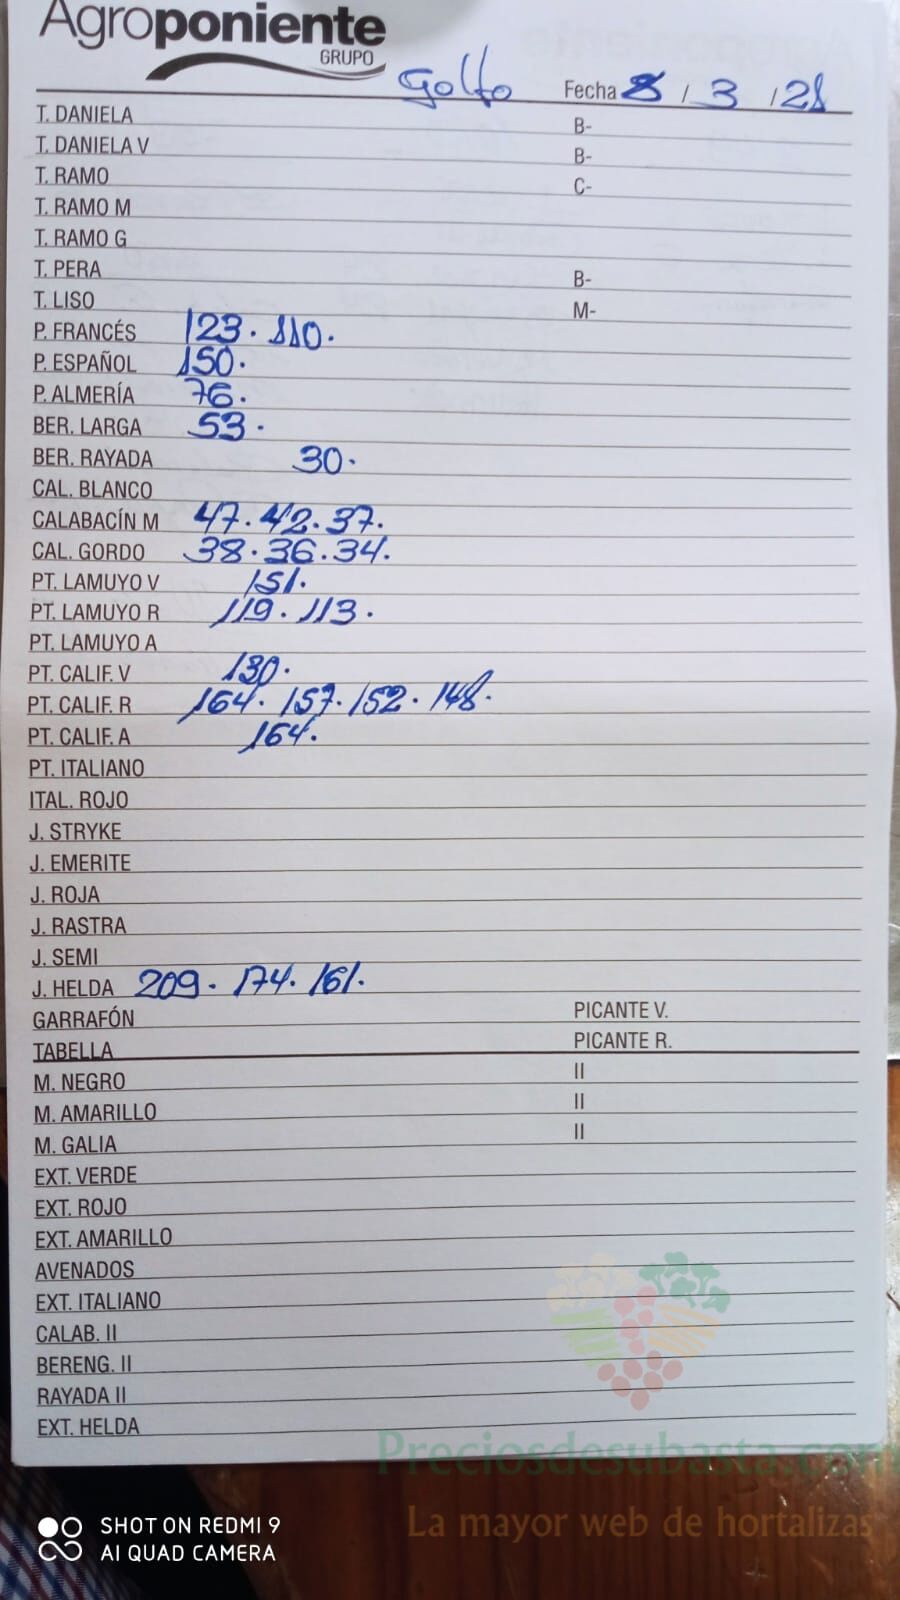 Agroponiente
GRUPO
Golfo Fecha 8 / 3 / 21
T. DANIELA B-
T. DANIELA V B-
T. RAMO C-
T. RAMO M
T. RAMO G
T. PERA B-
T. LISO M-
P. FRANCÉS 123. 110.
P. ESPAÑOL 150.
P. ALMERÍA 76.
BER. LARGA 53.
BER. RAYADA 30.
CAL. BLANCO
CALABACÍN M 47. 42. 37.
CAL. GORDO 38. 36. 34.
PT. LAMUYO V 151.
PT. LAMUYO R 119. 113.
PT. LAMUYO A
PT. CALIF. V 130.
PT. CALIF. R 164. 157. 152. 148.
PT. CALIF. A 164.
PT. ITALIANO
ITAL. ROJO
J. STRYKE
J. EMERITE
J. ROJA
J. RASTRA
J. SEMI
J. HELDA 209. 174. 161.
GARRAFÓN PICANTE V.
TABELLA PICANTE R.
M. NEGRO II
M. AMARILLO II
M. GALIA II
EXT. VERDE
EXT. ROJO
EXT. AMARILLO
AVENADOS
EXT. ITALIANO
CALAB. II
BERENG. II
RAYADA II
EXT. HELDA
Preciosdesubasta.com
La mayor web de hortalizas
SHOT ON REDMI 9
AI QUAD CAMERA